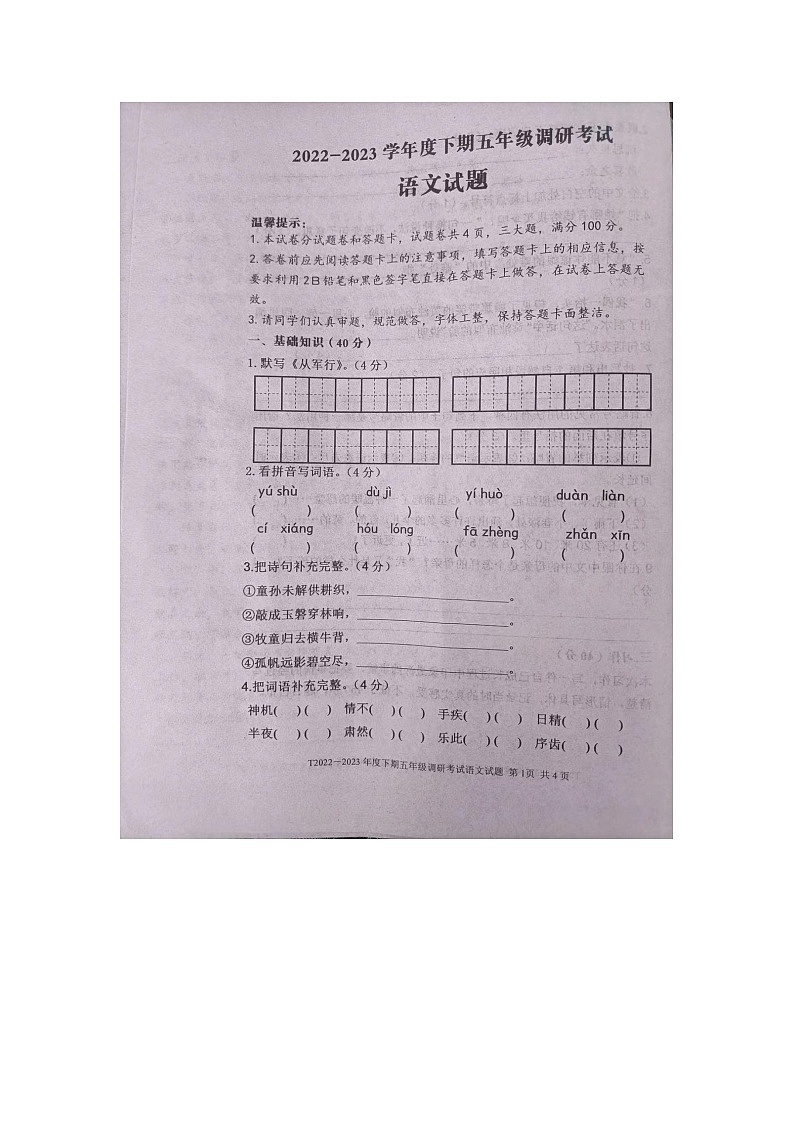 2022-2023 学年度下期五年级调研考试
语文试题
温馨提示：
1. 本试卷分试题卷和答题卡，试题卷共 4 页，三大题，满分 100 分。
2. 答卷前应先阅读答题卡上的注意事项，填写答题卡上的相应信息，按
要求利用 2B 铅笔和黑色签字笔直接在答题卡上做答，在试卷上答题无
效。
3. 请同学们认真审题，规范做答，字体工整，保持答题卡面整洁。
一、基础知识（40 分）
1. 默写《从军行》。（4 分）
2. 看拼音写词语。（4 分）
yú shù dù jì yí huò duàn liàn
( ) ( ) ( ) ( )
cí xiáng hóu lóng fā zhèng zhǎn xīn
( ) ( ) ( ) ( )
3. 把诗句补充完整。（4 分）
①童孙未解供耕织，____________________。
②敲成玉磬穿林响，____________________。
③牧童归去横牛背，____________________。
④孤帆远影碧空尽，____________________。
4. 把词语补充完整。（4 分）
神机( )( ) 情不( )( ) 手疾( )( ) 日精( )( )
半夜( )( ) 肃然( )( ) 乐此( )( ) 序齿( )( )
T2022—2023 年度下期五年级调研考试语文试题 第 1页 共 4 页